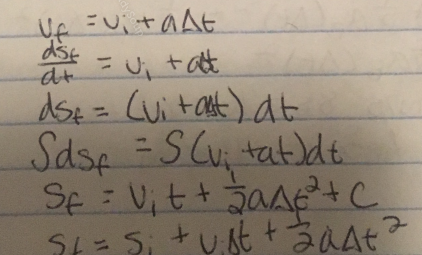 v_f = v_i + aΔt
ds_f/dt = v_i + at
ds_f = (v_i + at) dt
∫ds_f = ∫(v_i + at)dt
S_f = v_i t + 1/2 aΔt² + C
S_f = S_i + v_i Δt + 1/2 aΔt²